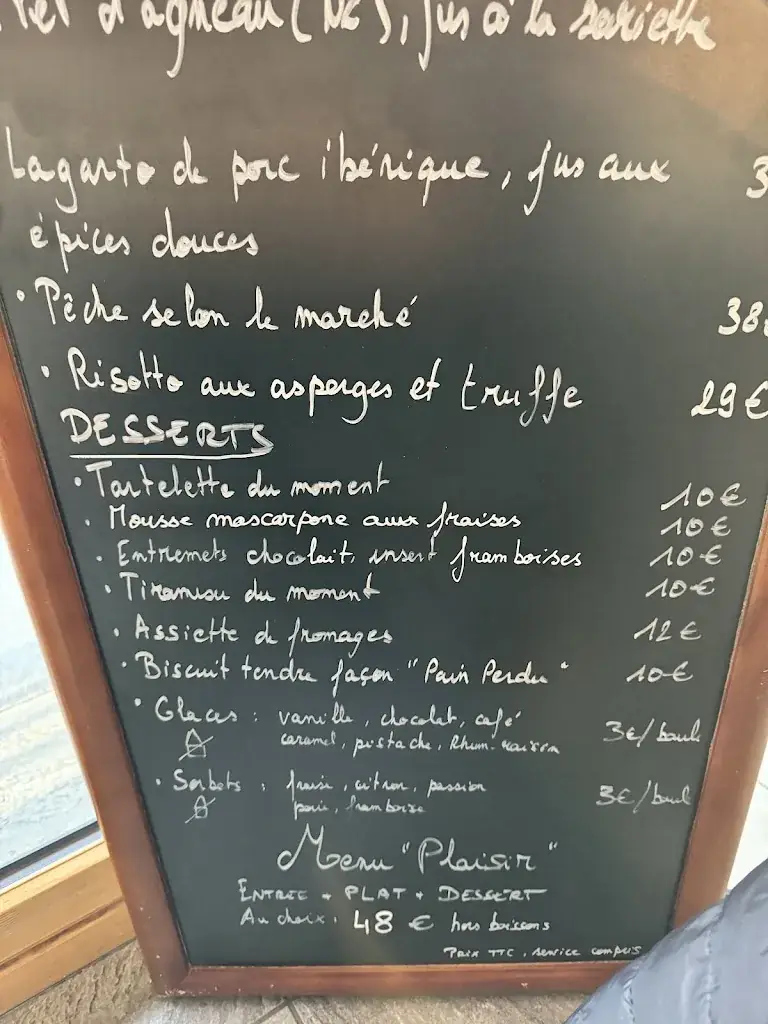 d'agneau (NZ), jus à la sariette
Lagarto de porc ibérique, jus aux 3
épices douces
• Pêche selon le marché 38
• Risotto aux asperges et truffe 29€
DESSERTS
• Tartelette du moment 10€
• Mousse mascarpone aux fraises 10€
• Entremets chocolait, insert framboises 10€
• Tiramisu du moment 10€
• Assiette de fromages 12€
• Biscuit tendre façon "Pain Perdu" 10€
• Glaces : vanille, chocolat, café
caramel, pistache, Rhum-raisin 3€/boule
• Sorbets : fraise, citron, passion
poire, framboise 3€/boule
Menu "Plaisir"
ENTREE + PLAT + DESSERT
Au choix. 48 € hors boissons
Prix TTC, service compris